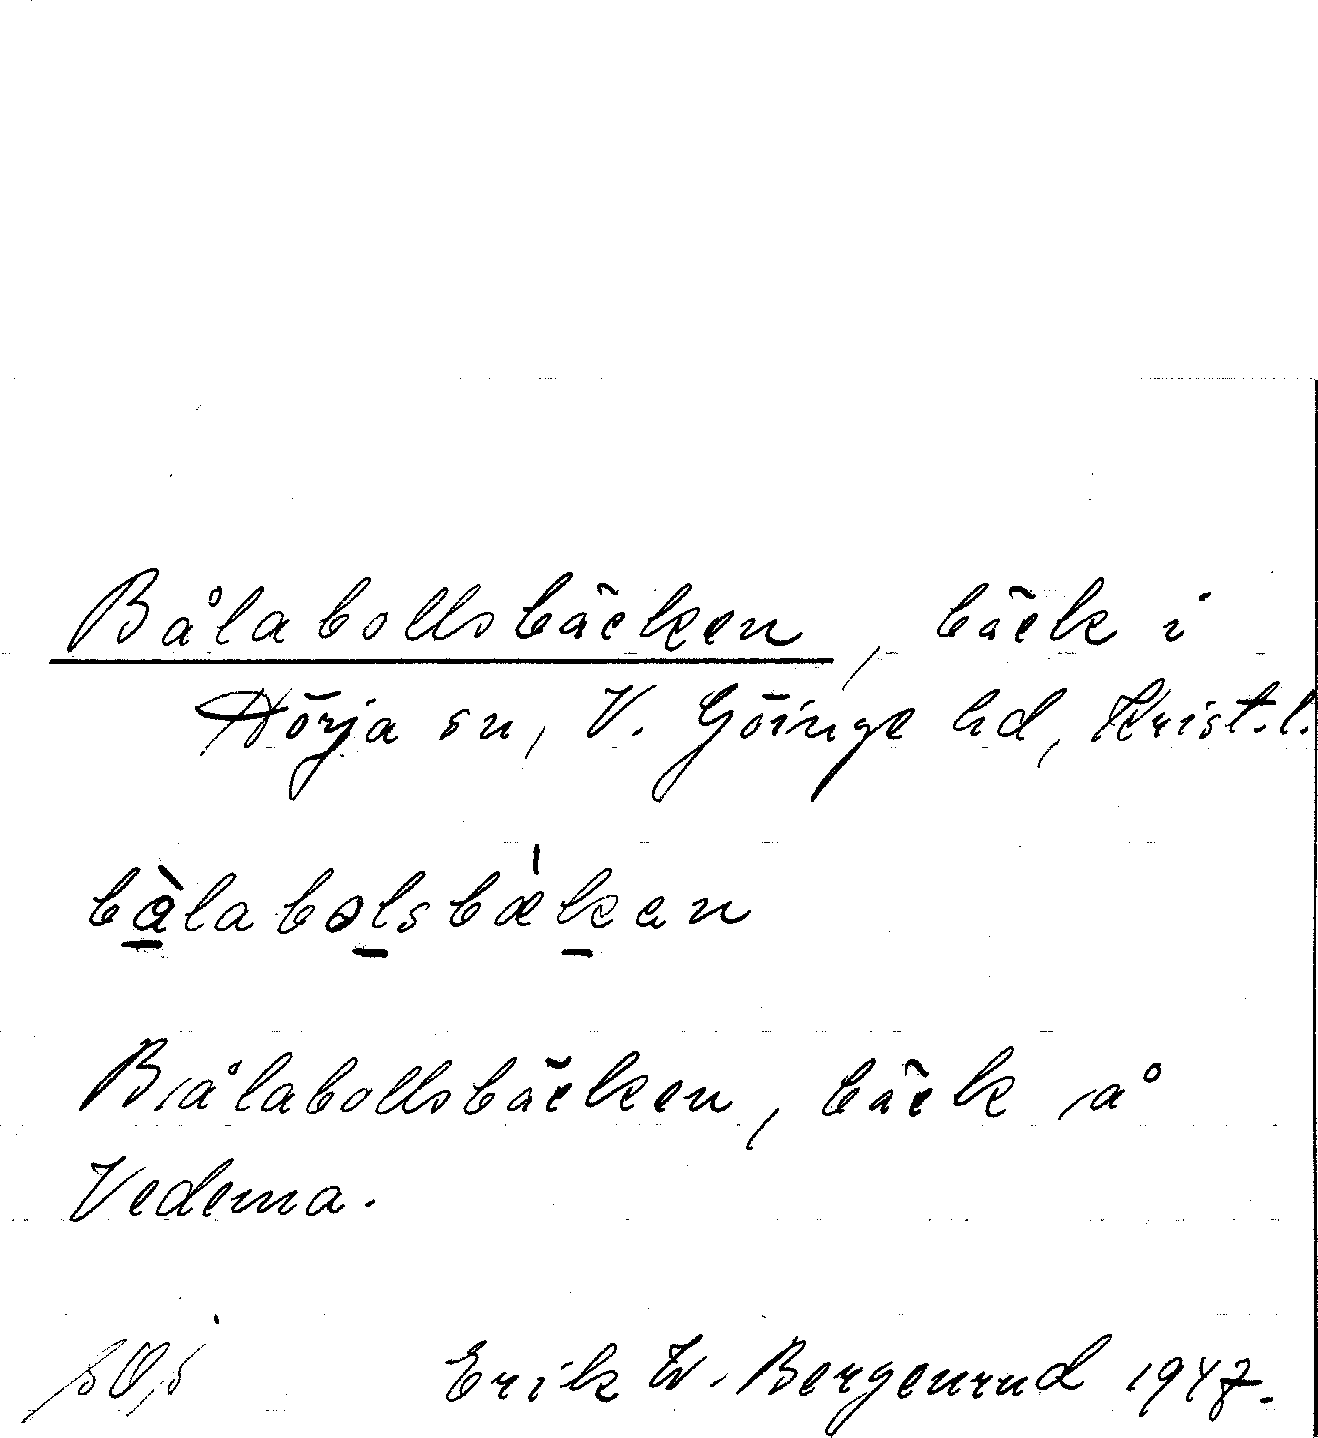 Bålabollsbäcken, bäck i
Hörja sn, V. Göinge hd, Krist.l.
bàlabolsbækan
Bålabollsbäcken, bäck å
Vedema.
Erik W. Bergenrud 1947.